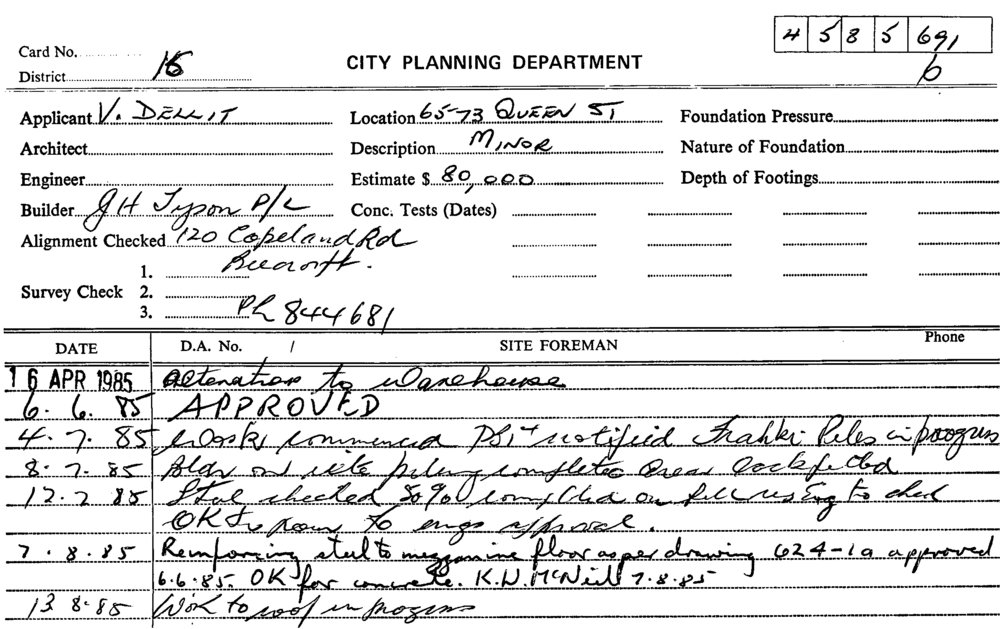 4 5 8 5 691
6
Card No.
District 16
CITY PLANNING DEPARTMENT
Applicant V. DELLIT
Location 65-73 QUEEN ST
Foundation Pressure
Architect
Description MINOR
Nature of Foundation
Engineer
Estimate $ 80,000
Depth of Footings
Builder J H Tyson P/L
Conc. Tests (Dates)
Alignment Checked 120 Copeland Rd
Beecroft.
1.
Survey Check 2.
3. Ph 844681
DATE D.A. No. / SITE FOREMAN Phone
16 APR 1985 Alteration to Warehouse
6. 6. 85 APPROVED
4. 7. 85 Work commenced notified Franki Piles in progress
8. 7. 85 Bldr on site piling completed
12. 7 85 Steel checked 80% completed on Eng to check
OK to pour to engs approval.
7. 8. 85 Reinforcing steel to mezzanine floor as per drawing 624-1a approved
6.6.85. OK for concrete. K.W. McNeill 7.8.85
13 8. 85 Work to roof in progress